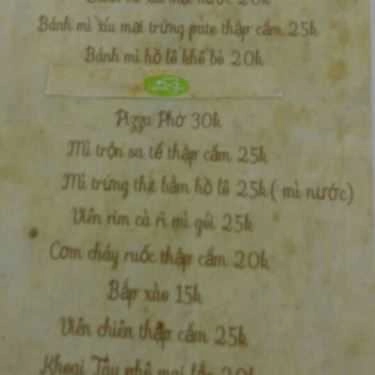 20k
Bánh mì xíu mại trứng pate thập cẩm 25k
Bánh mì hồ lô khế bò 20k
Pizza Phờ 30k
Mì trộn sa tế thập cẩm 25k
Mì trứng thịt bằm hồ lô 25k (mì nước)
Viên rim cà ri mì gói 25k
Cơm cháy ruốc thập cẩm 20k
Bắp xào 15k
Viên chiên thập cẩm 25k
Khoai Tây phô mai lắc 20k